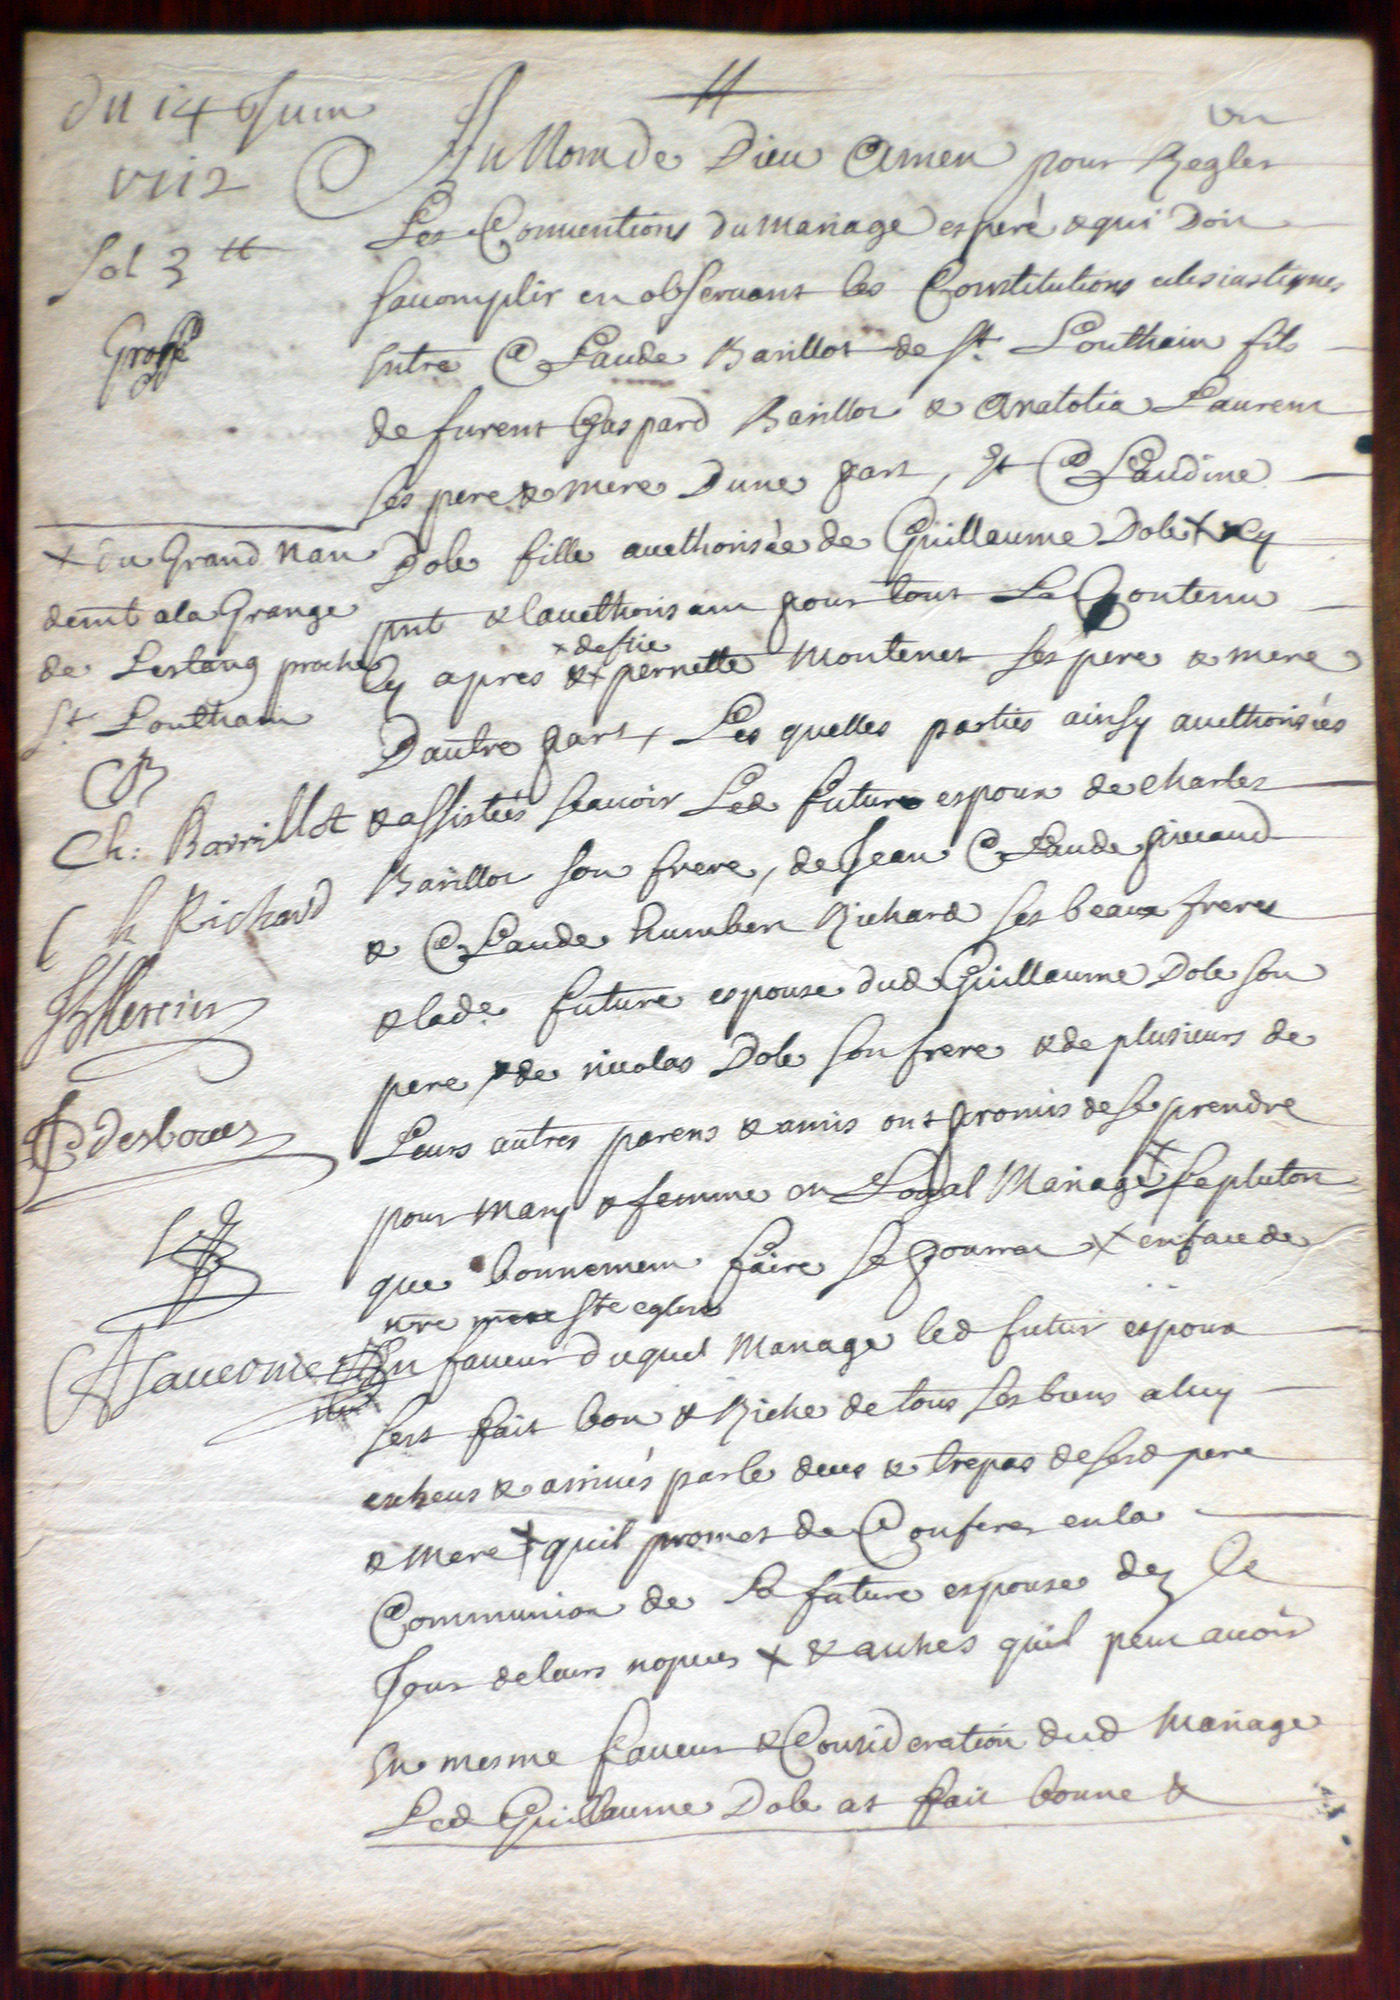 du 14 Juin
1712
sol 3 tt
Grossé
Au Nom de Dieu Amen pour Regler
Les Conuentions du mariage esperé & qui doit
saccomplir en obseruant les Constitutions eclesiastiques
Entre Claude Barillot de St. Louthain fils
de furent Gaspard Barillot & Anatolia Laurent
ses pere & mere dune part, Et Claudine
Dole fille aucthorisée de Guillaume Dole x cy
pnt & laucthorisant pour tout Le Contenu
Cy apres & x pernette Montenet ses pere & mere
x deffte
Dautre part, Les quelles parties ainsy aucthorisées
& assistées scauoir Led futur espoux de Charles
Barillot son frere, de Jean Claude
& Claude humbert Richard ses beaux freres
& lade future espouse dud Guillaume Dole son
pere & de nicolas Dole son frere & de plusieurs de
Leurs autres parens & amis ont promis de se prendre
pour mary & femme en Loyal Mariage x le plutot
que bonnement faire se pourrat x en face de
nre mere Ste eglise
En faueur duquel Mariage led futur espoux
sest fait bon & Riche de tous ses biens a luy
escheus & arriués par le deces & trepas de sesd pere
& mere x quil promet de Conferer en la
Communion de la future espouse dez le
Jour de leurs nopces x & autres quil peut auoir
En mesme faueur & Consideration dud Mariage
Led Guillaume Dole at fait bonne &
x du Grand nan
demt a la Grange
de Lestang proche
St. Louthain
CB
Ch: Barrillot
Ch Richard
Mercier
desboues